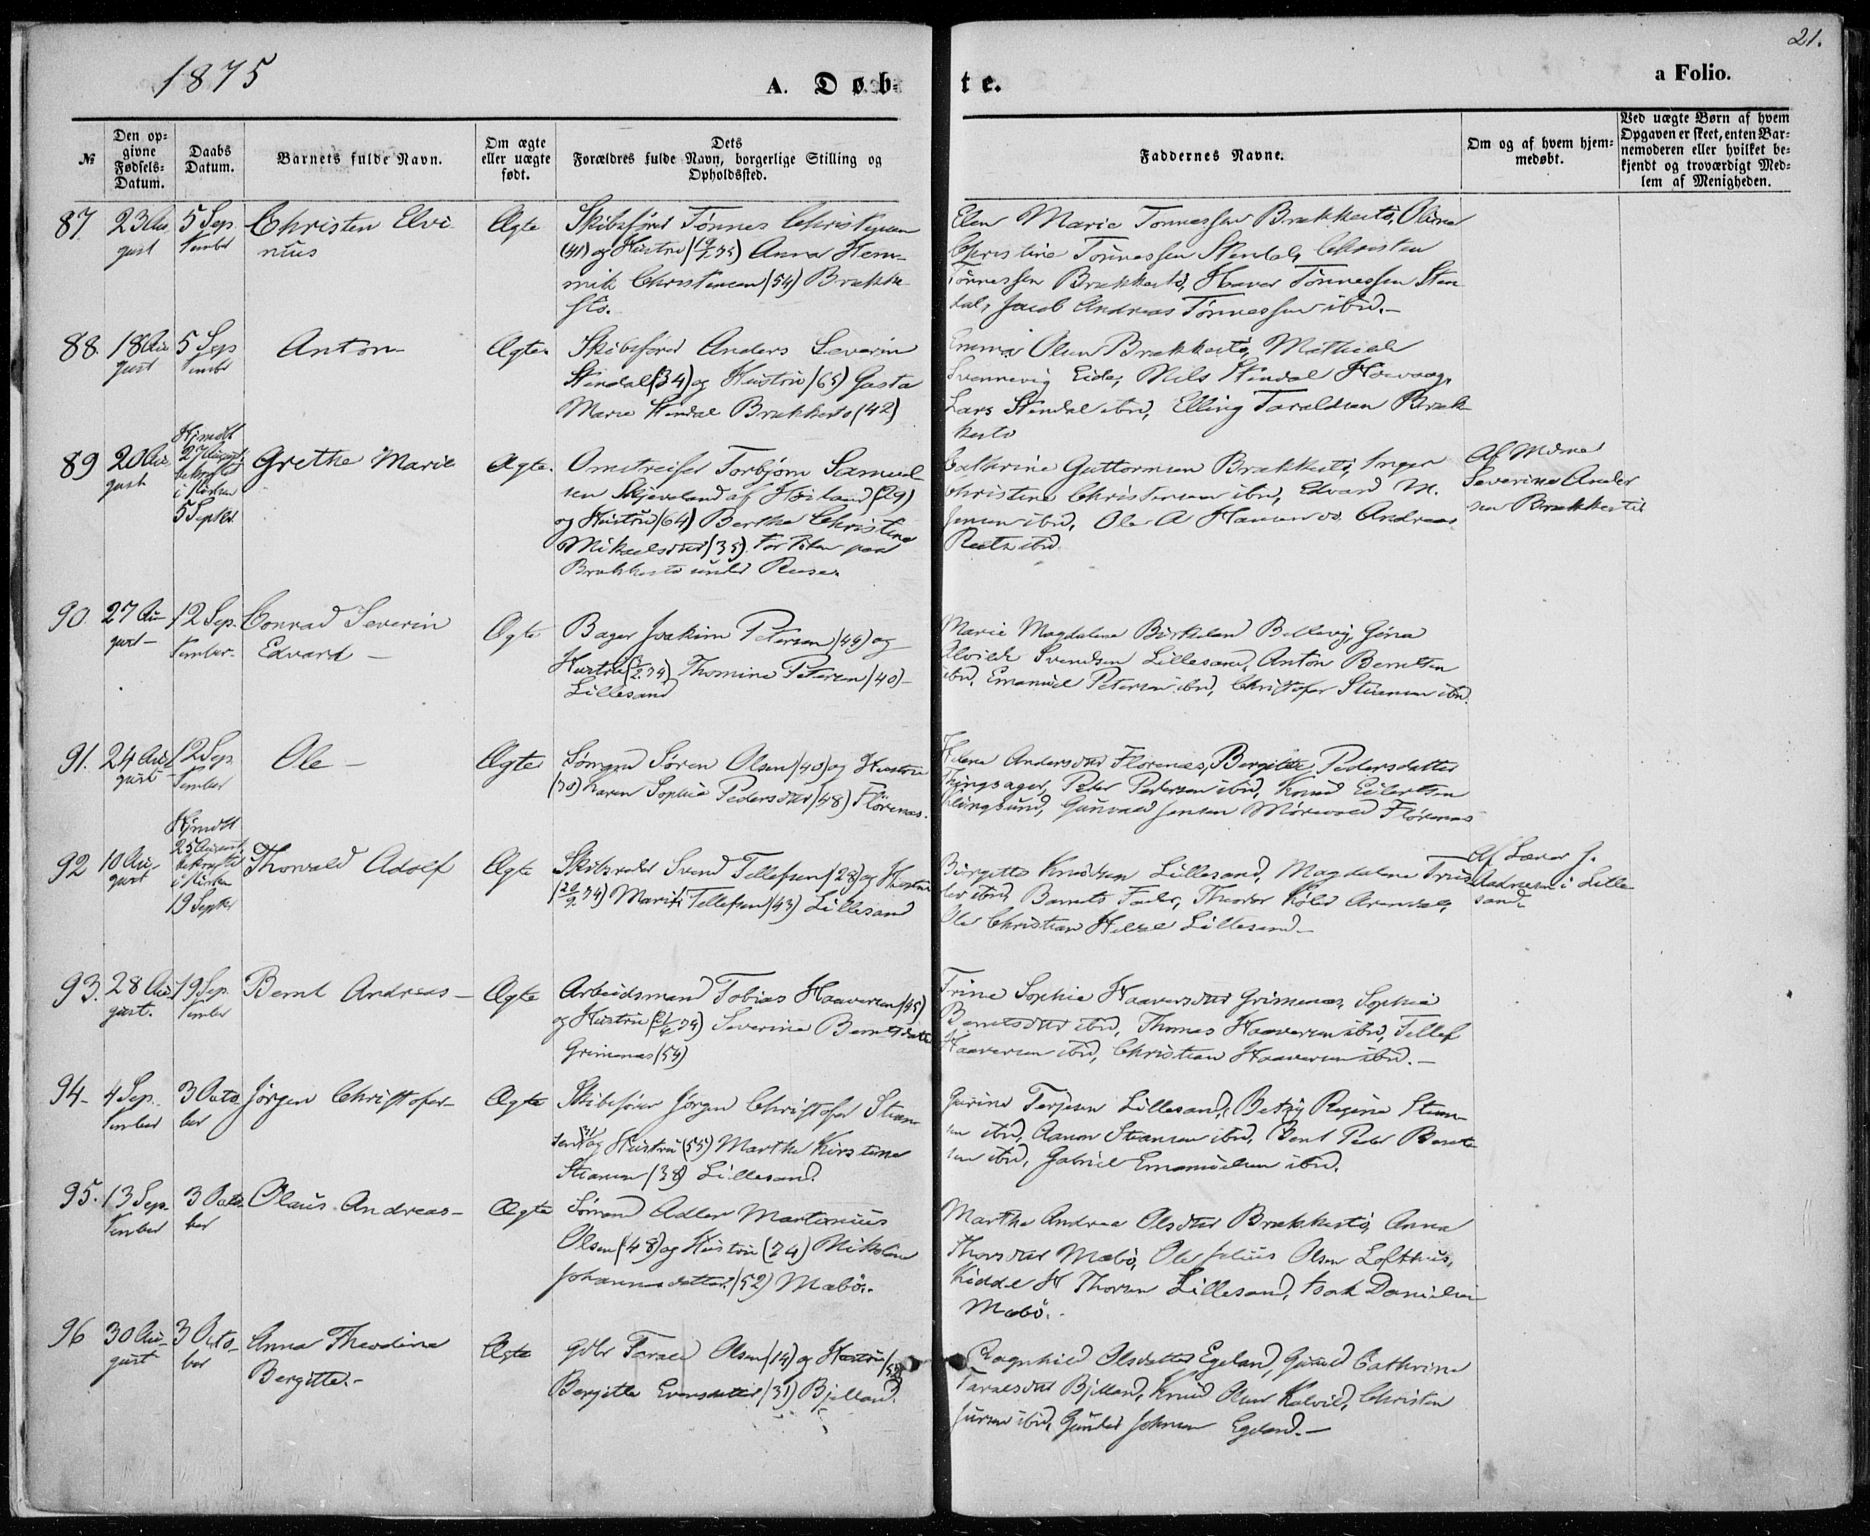 1875
A. Døb-
te.
a Folio.
21.
№
Den op-
givne
Fødsels-
Datum.
Daabs
Datum.
Barnets fulde Navn.
Om ægte
eller uægte
født.
Dets
Forældres fulde Navn, borgerlige Stilling og
Opholdssted.
Faddernes Navne.
Om og af hvem hjem-
medøbt.
Ved uægte Børn af hvem
Opgaven er skeet, enten Bar-
nemoderen eller hvilket be-
kjendt og troværdigt Med-
lem af Menigheden.
87.
23 Au-
gust
5 Sep
tember
Christen Elvi
nius
Ægte
Skibsfører Tønnes Christensen
(41) og Hustru Anna Hen-
Christensen (54) Brække-
stø.
Elen Marie Tønnessen Brækkestø, Oline
Christine Tønnessen Stendal, Christen
Tønnessen Brækkestø, Tønnessen Sten
dal, Jacob Andreas Tønnessen ibid.-
88.
18 Au
gust
5 Sep
tember
Anton
Ægte
Skibsfører Anders Severin
Stendal (34) og Hustru (65) Gusta
Marie Stendal Brækkestø (42)
Emma Olsen Brækkestø, Mathilde
Svennevig Eide, Nils Stendal Høivaag,
Lars Stendal ibid, Elling Taraldsen Bræk-
kestø
89
20 Au
gust
Hjmdbt
27 August
bekræftet
i Kirken
5 Septbr.
Grethe Marie
Ægte.
Omstreifer Torbjørn Samuel
sen Skjeveland af Høiland (29)
og Hustru (64) Berthe Christine
Mikkelsdtr (35). For Tiden paa
Brækkestø under
Cathrine Guttormsen Brækkestø, Inger
Christine Christensen ibid, Edvard M.
Jensen ibid, Ole A Hansen do, Andreas
ibid
Af
Severine Ander
sen Brækkestø
90.
27 Au-
gust-
12 Sep.
tember.
Conrad Severin
Edvard -
Ægte
Bager Joakim Petersen (49) og
Hustru Thomine Petersen (40)-
Lillesand
Marie Magdalene Birkeland Bellevig, Gina
Alvilde Svendsen Lillesand, Anton Berntsen
ibid, Emanuel Petersen ibid, Christofer ibid.
91.
24 Au
gust
12 Sep.
tember
Ole -
Ægte
Sømand Søren Olsen (40) og Hustru
(70) Karen Sophie Pedersdtr (48) Flørenæs.
Helene Andersdtr Florenæs, Bergitte Pedersdatter
Tingsager, Peter Pedersen ibid, Knud Eilertsen
Gunvald Jensen Flørenæs
92
10 Au
gust
Hjmdbt
25 August
bekræftet
i Kirken
19 Septbr
Thorvald Adolf
Ægte
Skibsreder Svend Tellefsen (28) og Hustru
Tellefsen (43) Lillesand
Birgitte Knudsen Lillesand, Magdalene
ibid, Barnets Fader, Theodor Arendal,
Ole Christian Lillesand -
Af Lærer J.
Aadnesen i Lille
sand
93.
28 Au
gust.
19 Sep
tember
Bernt Andreas -
Ægte
Arbeidsmand Tobias Haaversen (45)
og Hustru Severine Berntsdatter
Grimenæs (54)
Trine Sophie Haaversdtr Grimenæs, Sophie
Berntsdtr ibid, Thomas Haaversen ibid, Tellef
Haaversen ibid, Christian Haaversen ibid. -
94-
4 Sep.
tember
3 Octo
ber
Jørgen Christofer-
Ægte
Skibsfører Jørgen Christofer
og Hustru (55) Marthe Kirstine
(38) Lillesand.
Terjesen Lillesand, Betzy Regine
ibid, ibid, Bent Peder Bernt
sen ibid, Gabriel Emanuelsen ibid.
95.
13 Sep.
tember
3 Octo
ber
Olaus Andreas-
Ægte
Sømand Adler Martinius
Olsen (48) og Hustru (74) Nikoline
Johannesdatter (52) Mæbø.
Marthe Andrea Olsdtr Brækkestø, Anna
Thorsdtr Mæbø, Ole Julius Olsen Lofthus,
H Thorsen Lillesand, Isak Danielsen
Mæbø.
96
30 Au-
gust
3 Octo-
ber
Anna Theodine
Bergitte.-
Ægte
Gdbr Tarald Olsen (14) og Hustru
Bergitte Evensdatter (31) Bjelland.
Ragnhild Olsdatter Egeland, Cathrine
Taraldsdtr Bjelland, Knud Olsen Kalvild, Christen
ibid, Gunder Johnsen Egeland. -